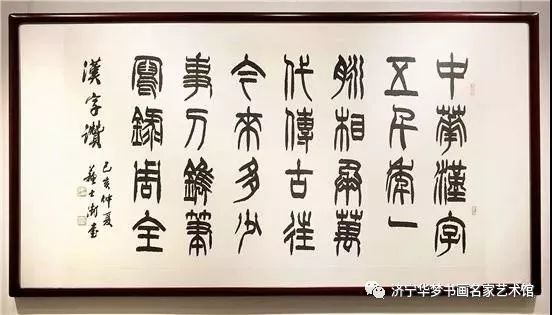 中華漢字
五千年一
脈相承萬
代傳古往
今來多少
事刀鐫筆
寫錄周全
漢字讚
己亥仲夏
蘇士澍書
济宁华梦书画名家艺术馆